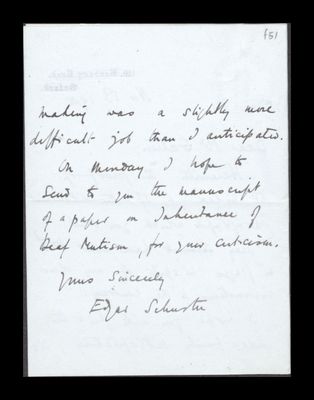 f51
making was a slightly more
difficult job than I anticipated.
On Monday I hope to
send to you the manuscript
of a paper on Inheritance of
Deaf Mutism, for your criticism.
Yours Sincerely
Edgar Schuster